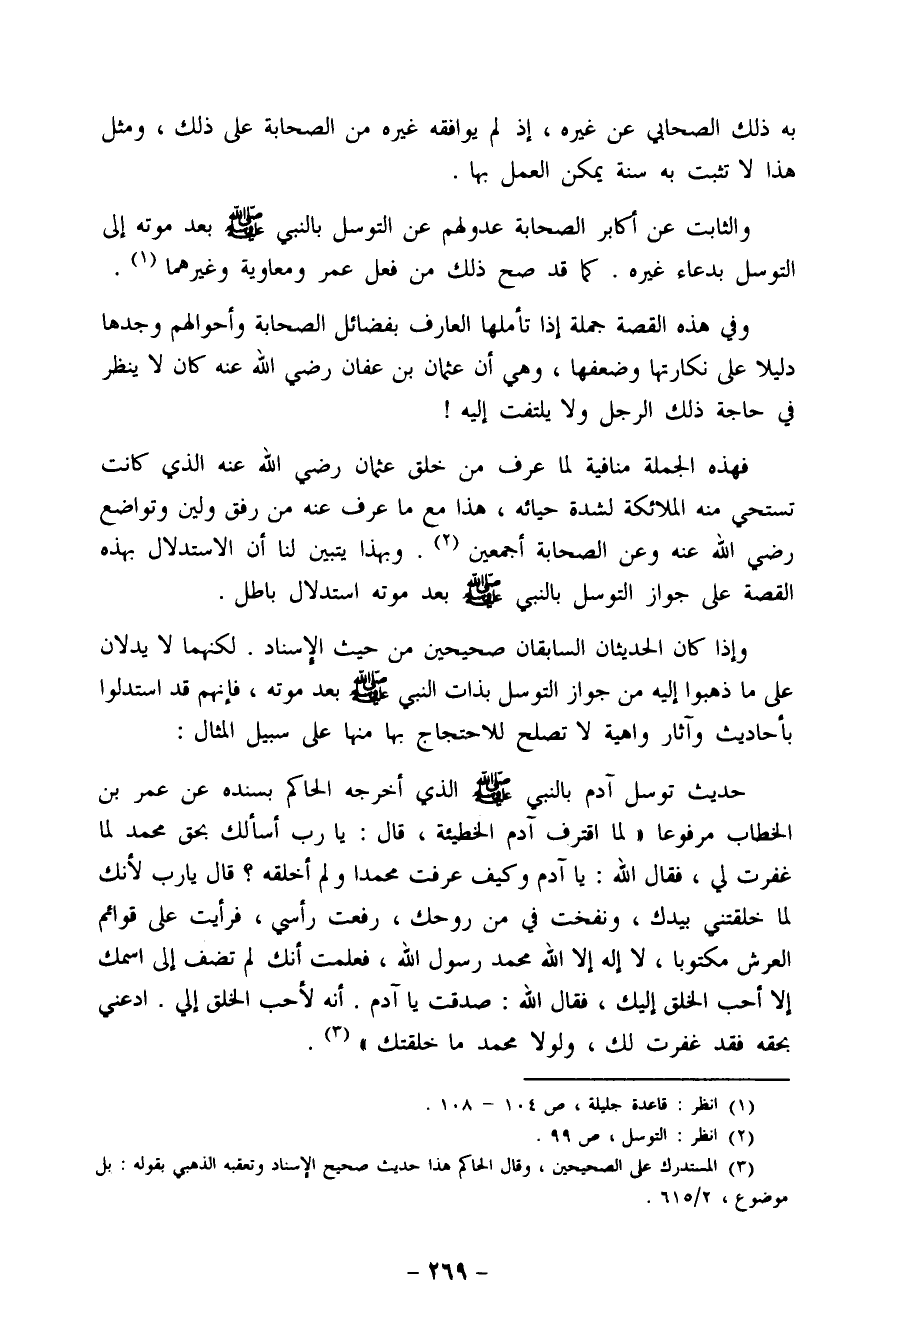 به ذلك الصحابي عن غيره ، إذ لم يوافقه غيره من الصحابة على ذلك ، ومثل
هذا لا تثبت به سنة يمكن العمل بها .
والثابت عن أكابر الصحابة عدولهم عن التوسل بالنبي ﷺ بعد موته إلى
التوسل بدعاء غيره . كما قد صح ذلك من فعل عمر ومعاوية وغيرهما (١) .
وفي هذه القصة جملة إذا تأملها العارف بفضائل الصحابة وأحوالهم وجدها
دليلا على نكارتها وضعفها ، وهي أن عثمان بن عفان رضي الله عنه كان لا ينظر
في حاجة ذلك الرجل ولا يلتفت إليه !
فهذه الجملة منافية لما عرف من خلق عثمان رضي الله عنه الذي كانت
تستحي منه الملائكة لشدة حيائه ، هذا مع ما عرف عنه من رفق ولين وتواضع
رضي الله عنه وعن الصحابة أجمعين (٢) . وبهذا يتبين لنا أن الاستدلال بهذه
القصة على جواز التوسل بالنبي ﷺ بعد موته استدلال باطل .
وإذا كان الحديثان السابقان صحيحين من حيث الإسناد . لكنهما لا يدلان
على ما ذهبوا إليه من جواز التوسل بذات النبي ﷺ بعد موته ، فإنهم قد استدلوا
بأحاديث وآثار واهية لا تصلح للاحتجاج بها منها على سبيل المثال :
حديث توسل آدم بالنبي ﷺ الذي أخرجه الحاكم بسنده عن عمر بن
الخطاب مرفوعا « لما اقترف آدم الخطيئة ، قال : يا رب أسألك بحق محمد لما
غفرت لي ، فقال الله : يا آدم وكيف عرفت محمدا ولم أخلقه ؟ قال يارب لأنك
لما خلقتني بيدك ، ونفخت في من روحك ، رفعت رأسي ، فرأيت على قوائم
العرش مكتوبا ، لا إله إلا الله محمد رسول الله ، فعلمت أنك لم تضف إلى اسمك
إلا أحب الخلق إليك ، فقال الله : صدقت يا آدم . أنه لأحب الخلق إلي . ادعني
بحقه فقد غفرت لك ، ولولا محمد ما خلقتك » (٣) .
(١) انظر : قاعدة جليلة ، ص ١٠٤ – ١٠٨ .
(٢) انظر : التوسل ، ص ٩٩ .
(٣) المستدرك على الصحيحين ، وقال الحاكم هذا حديث صحيح الإسناد وتعقبه الذهبي بقوله : بل
موضوع ، ٦١٥/٢ .
- ٢٦٩ -